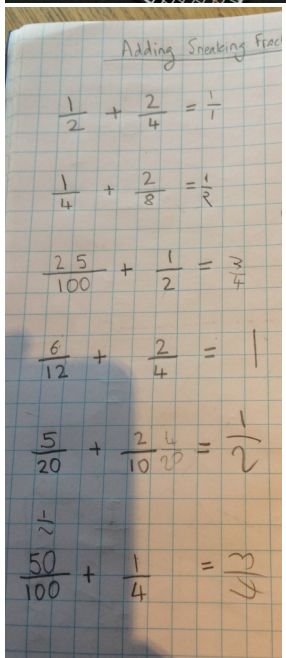 Adding Sneaking Frac
1/2 + 2/4 = 1/1
1/4 + 2/8 = 1/2
25/100 + 1/2 = 3/4
6/12 + 2/4 = 1
5/20 + 2/10 4/20 = 1/2
1/2
50/100 + 1/4 = 3/4